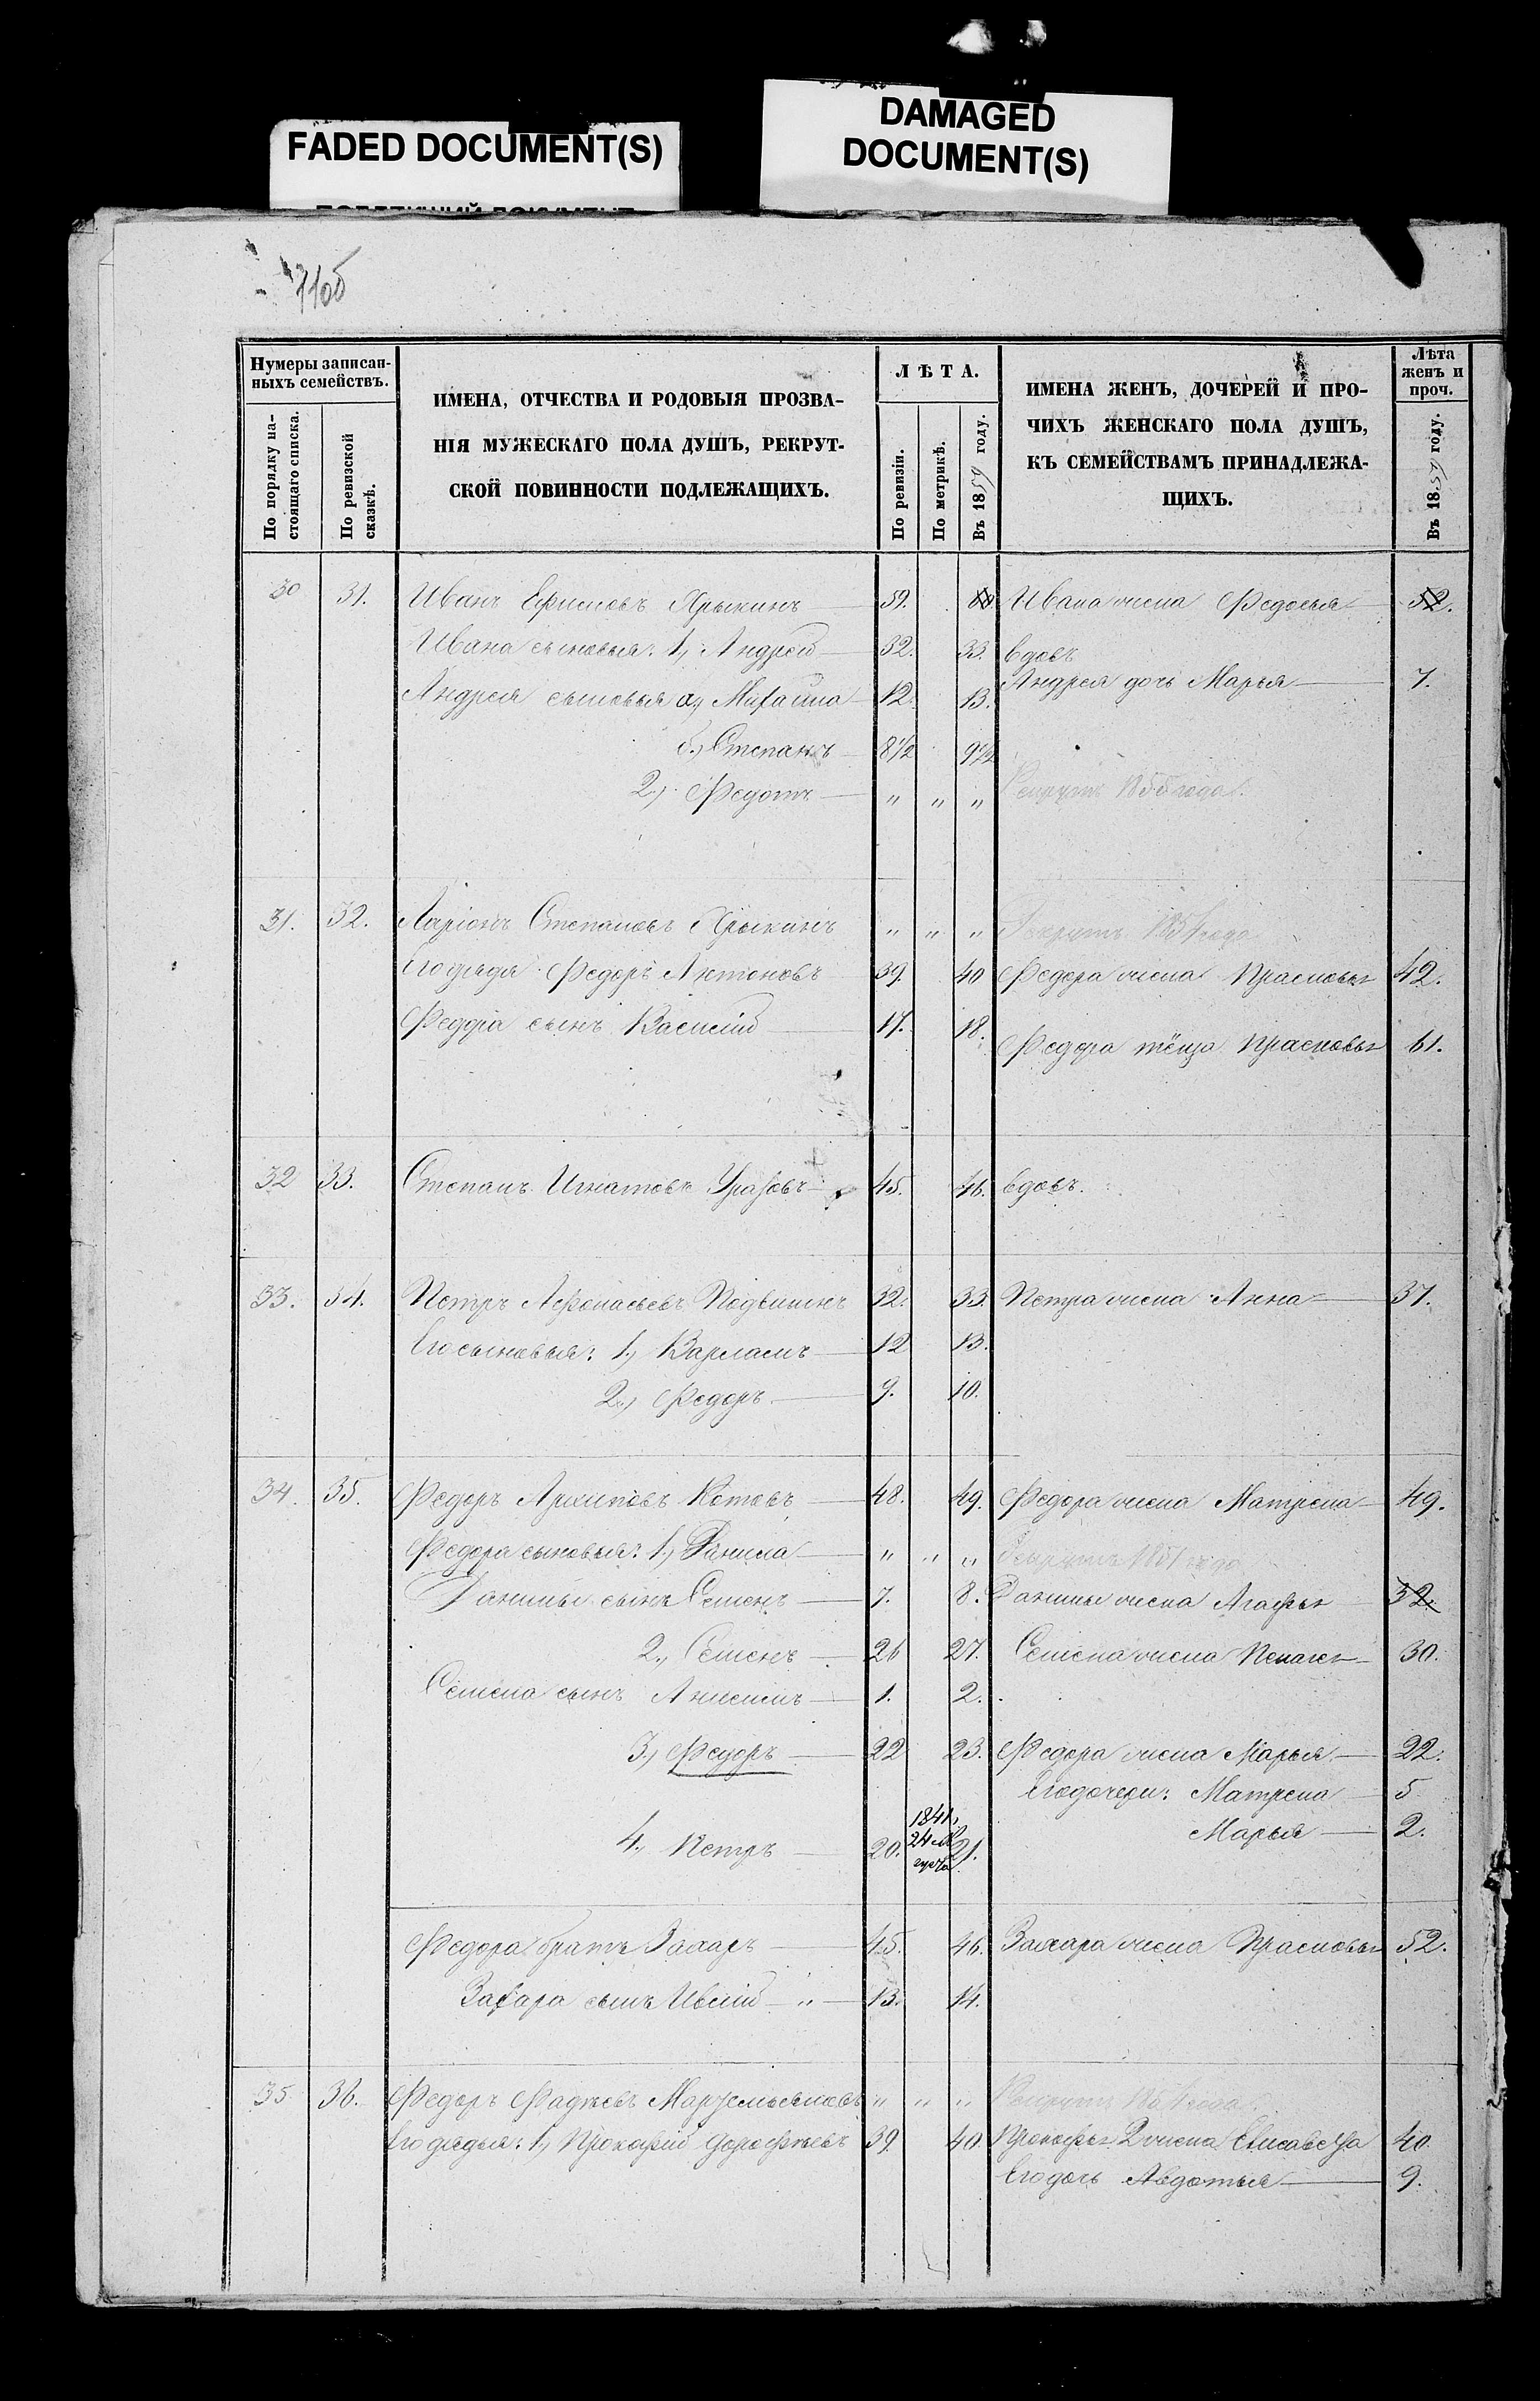 FADED DOCUMENT(S)
DAMAGED
DOCUMENT(S)
Нумеры записан-
ныхъ семействъ.
По порядку на-
стоящаго списка.
По ревизской
сказкѣ.
ИМЕНА, ОТЧЕСТВА И РОДОВЫЯ ПРОЗВА-
НІЯ МУЖЕСКАГО ПОЛА ДУШЪ, РЕКРУТ-
СКОЙ ПОВИННОСТИ ПОДЛЕЖАЩИХЪ.
ЛѢТА.
По ревизіи.
По метрикѣ.
Въ 1859 году.
ИМЕНА ЖЕНЪ, ДОЧЕРЕЙ И ПРО-
ЧИХЪ ЖЕНСКАГО ПОЛА ДУШЪ,
КЪ СЕМЕЙСТВАМЪ ПРИНАДЛЕЖА-
ЩИХЪ.
Лѣта
женъ и
проч.
Въ 1859 году.
30 31. Иванъ Ефимовъ Ярыкинъ 59. Ивана жена Федосья 52.
Ивана сыновья: 1, Андрей 32. 33. вдовъ
Андрея сыновья а, Михаила 12. 13. Андрея дочь Марья 7.
б, Степанъ 8½ 9½
2, Федотъ " " " Рекрутъ 1855 года.
31. 32. Ларіонъ Степановъ Ярыкинъ " " " Рекрутъ 1854 года
Его дядя Федоръ Антоновъ 39. 40 Федора жена Прасковья 42.
Федора сынъ Василій 17. 18.
Федора тёща Прасковья 61.
32 33. Степанъ Игнатовъ 45. 46. вдовъ.
33. 34. Петръ Афонасьевъ 32. 33. Петра жена Анна 37.
Его сыновья: 1, Варламъ 12 13.
2, Федоръ 9. 10.
34. 35. Федоръ Архиповъ Котовъ 48. 49. Федора жена Матрена 49.
Федора сыновья: 1, Данила " " " Рекрутъ 1851 года
Данилы сынъ Семенъ 7. 8. Данилы жена Агафья 32.
2, Семенъ 26 27. Семена жена Пелагея 30.
Семена сынъ Анисимъ 1. 2.
3, Федоръ 22 23. Федора жена Марья 22.
Его дочери: Матрена 5
Марья 2.
4, Петръ 20. 1841, 24 21.
Федора братъ Захаръ 45. 46. Захара жена Прасковья 52.
Захара сынъ 13. 14.
35 36. Федоръ Фадѣевъ " " " Рекрутъ 1854 года
Его дядья: 1, Прокофій Дорофѣевъ 39 40 Прокофья 2 жена Елисавета 40
Его дочь Авдотья 9.